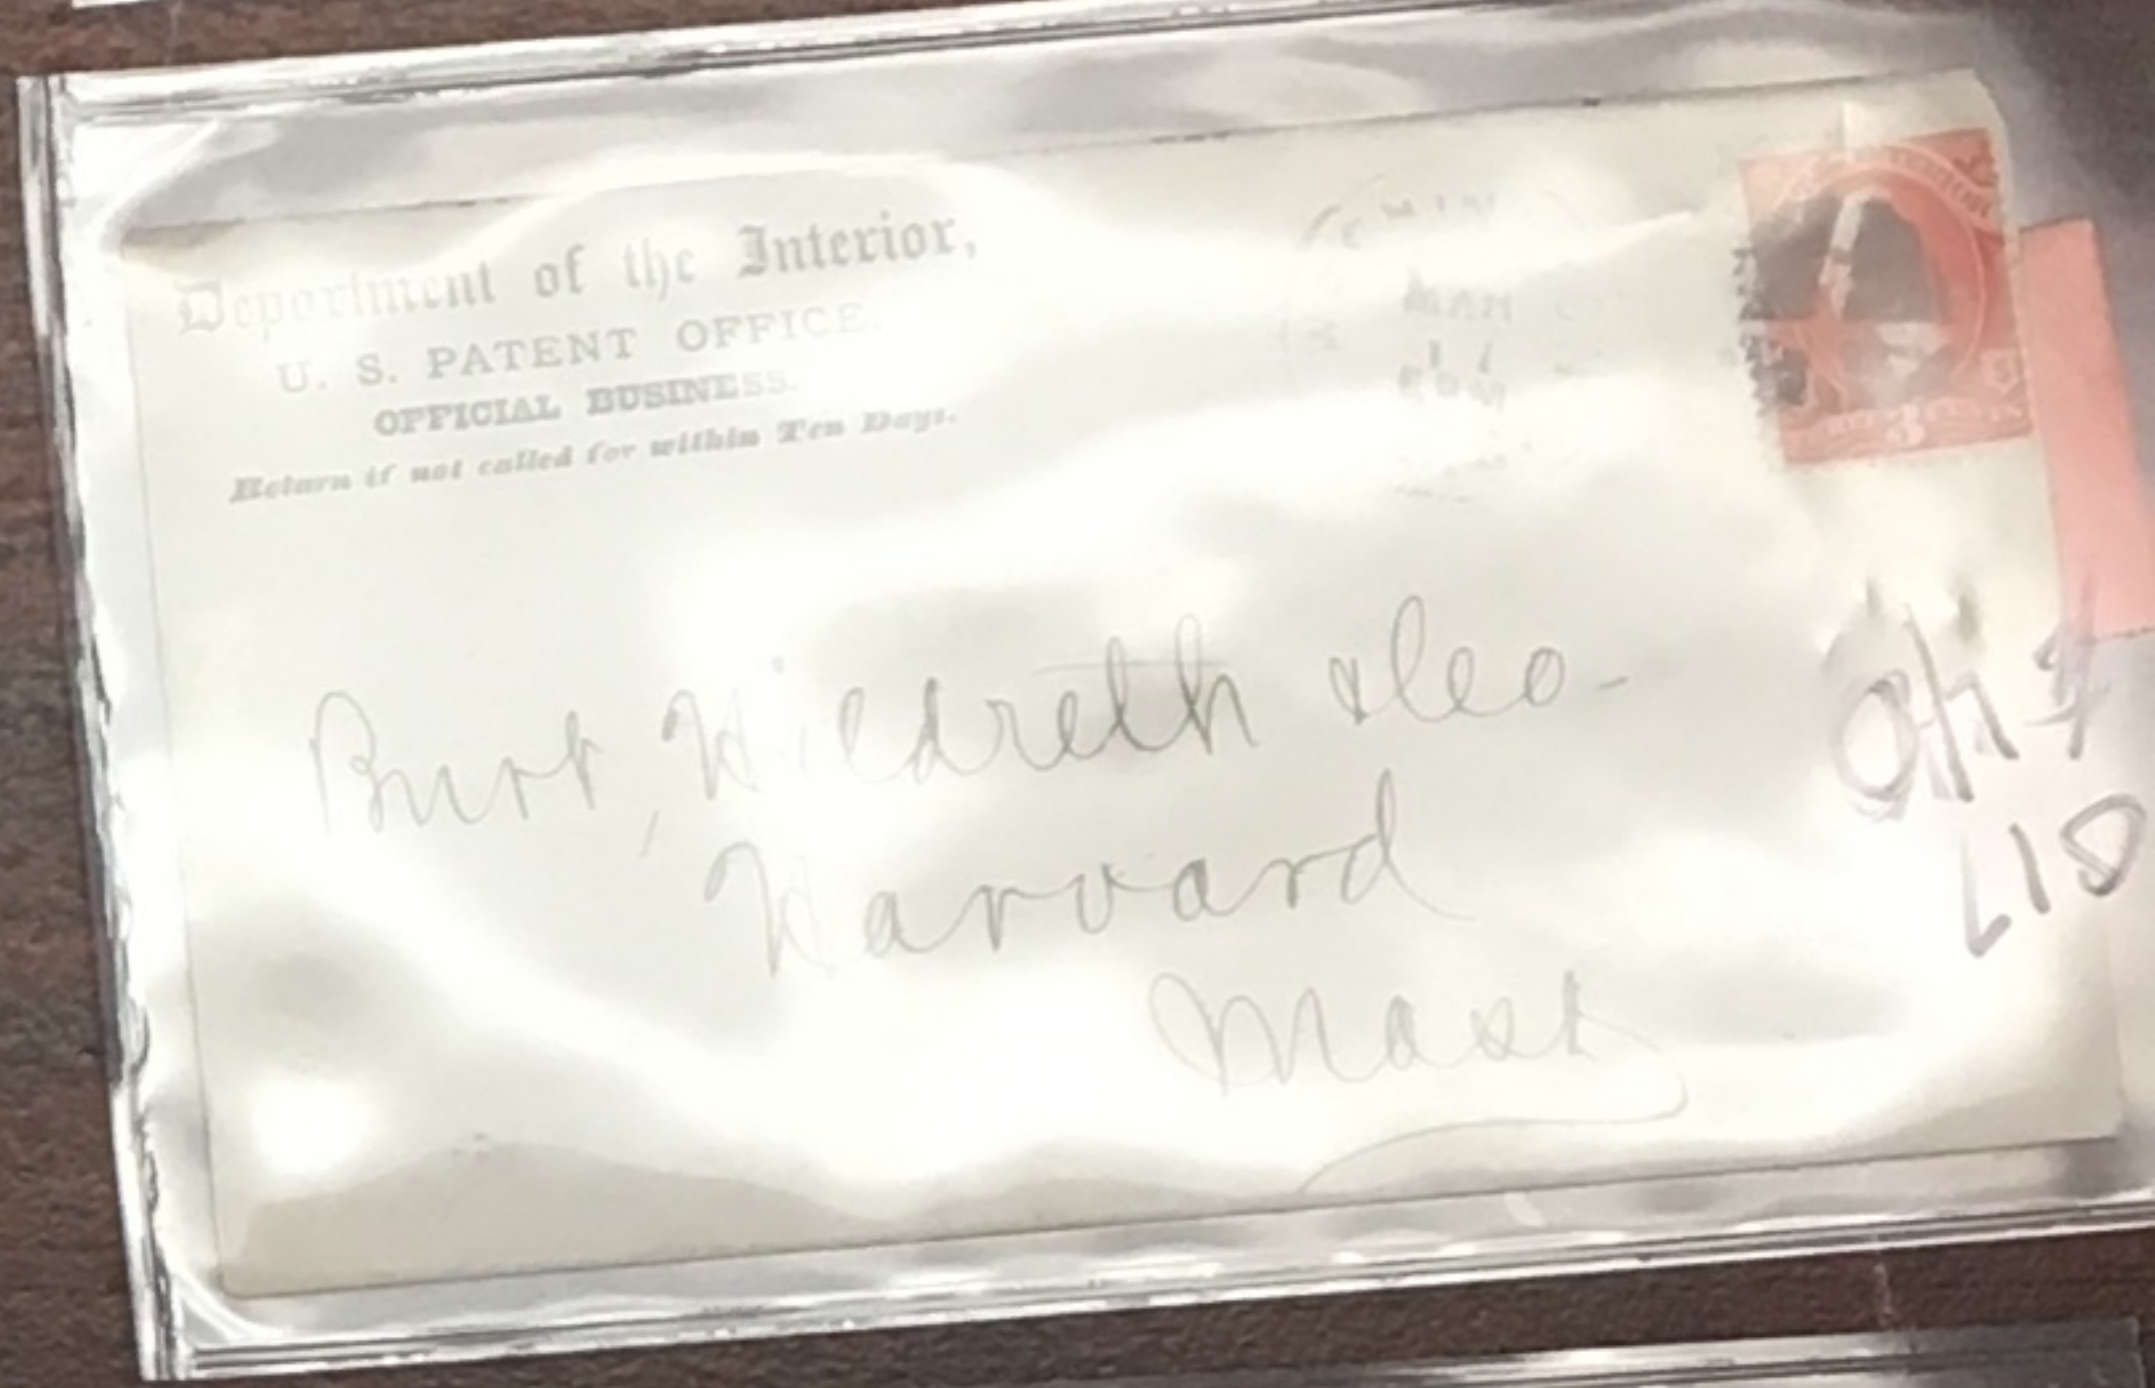 Department of the Interior,
U. S. PATENT OFFICE.
OFFICIAL BUSINESS.
Return if not called for within Ten Days.
MAR
17
3
Burt, Hildreth & Co-
Harvard
Mass